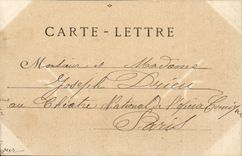 CARTE-LETTRE
Monsieur et Madame
Joseph Drieu
au Théatre National de l'Opéra Comique
Paris